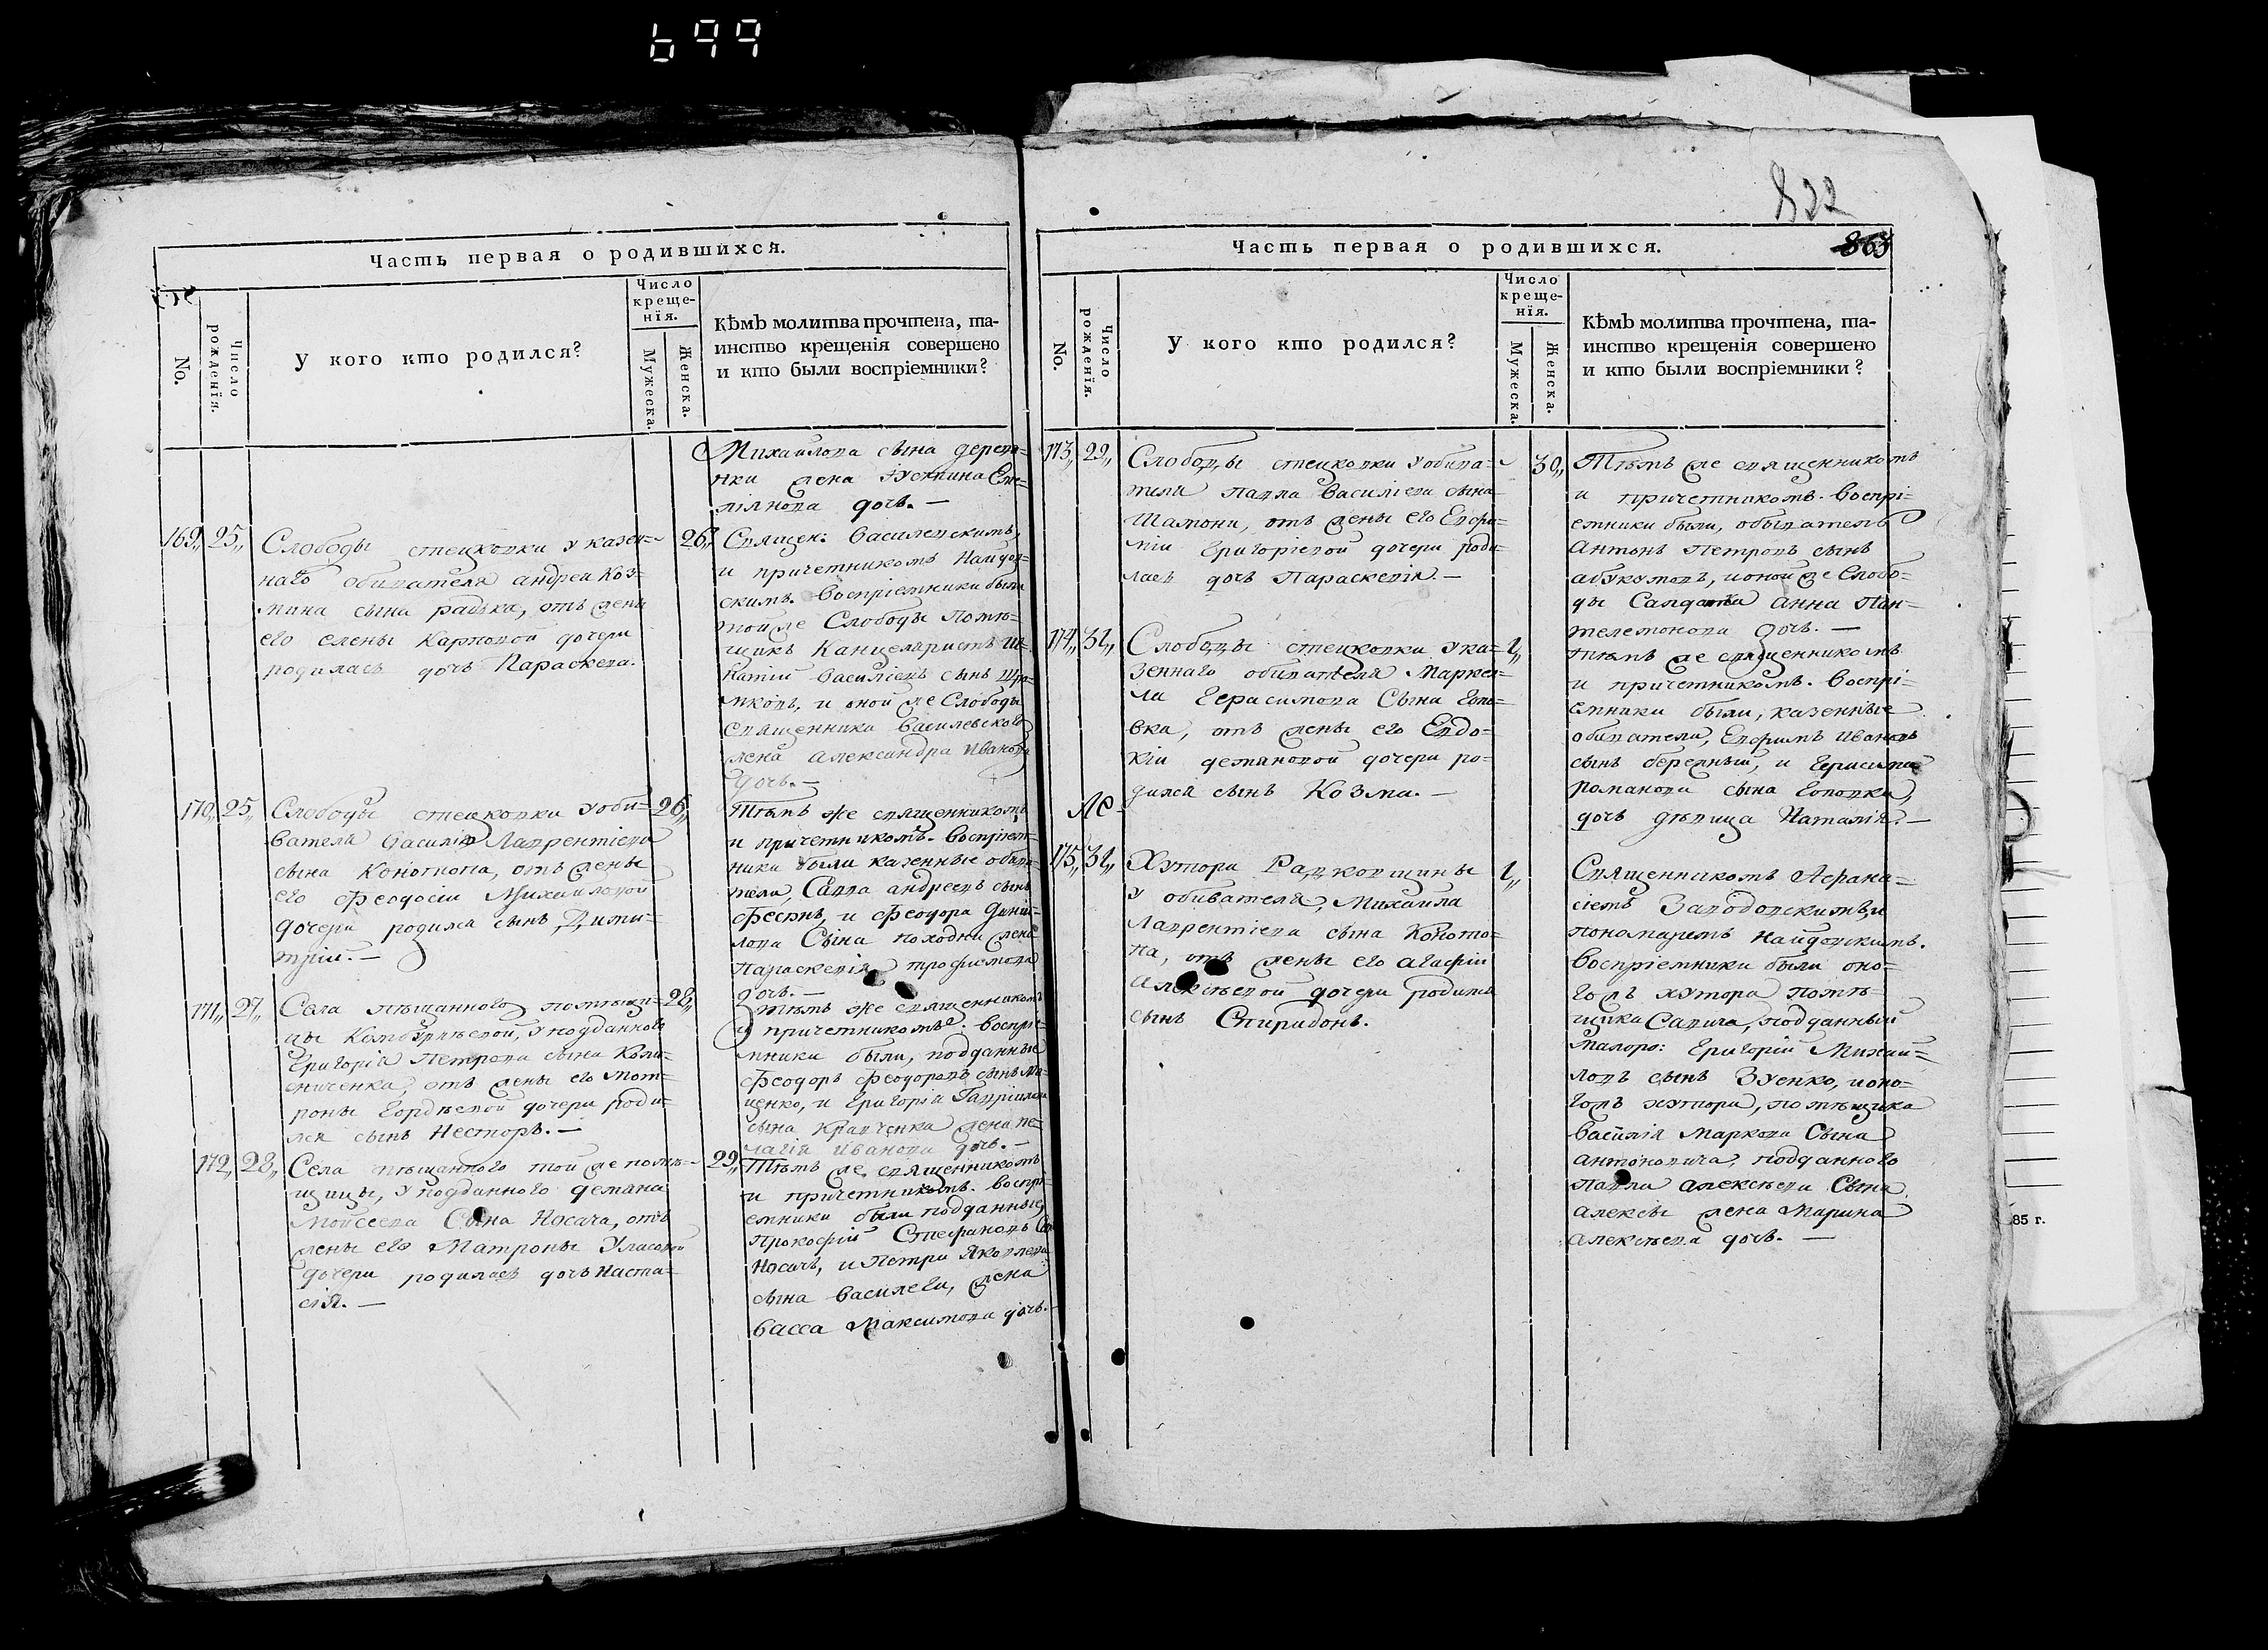 699
Часть первая о родившихся.
No.
Число рожденія.
У кого кто родился?
Число
креще-
нїя.
Мужеска.
Женска.
Кѣмъ молитва прочтена, та-
инство крещенія совершено
и кто были воспріемники?
Михайлова сына дерев-
жена
дочь.—
169,, 25,,
Слободы стецковки у казен-
наго обивателя андрея Коз-
мина сына радька, отъ жени
его елены Карповой дочери
родилась дочь Параскева.
26,,
Священ: Василевскимъ,
и причетникомъ Найдов-
скимъ. воспріемники были
той же Слободы помѣ-
щикъ Канцеляристъ Иг-
натій Василіевъ сынъ
и оной же Слободы
священника Василевского
жена александра Иванова
дочь.—
170,, 25,,
Слободы стецковки у оби-
вателя Василія Лаврентіева
сына Конотопа, отъ жены
его Феодосіи Михайловой
дочери родился сынъ Дими-
трій.—
26,,
Тѣмъ же священникомъ
и причетникомъ. воспріем-
ники были казенные обива-
тели, Савва андреевъ сынъ
и Феодора Данїи-
лова Сына жена
Параскевія трофимова
дочь.—
171,, 27,,
Села мѣщанного помѣщи-
цы у подданного
Григорія Петрова сына Коли-
сниченка, отъ жены его Мот-
роны Гордѣевой дочери роди-
лся сынъ Несторъ.—
28,,
Тѣмъ же священникомъ
и причетникомъ. воспріе-
мники были, подданные
Феодоръ Феодоровъ сынъ
и Григорія Гавріилова
сына Кравченка жена Пе-
лагія Иванова дочь.—
172,, 28,,
Села мѣщанного той же помѣ-
щицы, у подданного демяна
Мойсеева Сына Носача, отъ
жены его Матроны Уласовой
дочери родилась дочь Наста-
сія.—
29,,
Тѣмъ же священникомъ
и причетникомъ. воспрі-
емники были подданные,
Прокофій Стефановъ
Носачъ, и Петра Яковлева
сына василеги, жена
васса Максимова дочь.—
822
863
Часть первая о родившихся.
No.
Число рожденія.
У кого кто родился?
Число
креще-
нїя.
Мужеска.
Женска.
Кѣмъ молитва прочтена, та-
инство крещенія совершено
и кто были воспріемники?
173,, 29,,
Слободы стецковки у обива-
теля павла Василіева сына
Шамони, отъ жены его Евфи-
міи Григоріевой дочери роди-
лась дочь Параскевія.—
30,,
Тѣмъ же священникомъ
и причетникомъ. воспрі-
емники были, обыватель
антонъ Петровъ сынъ
абукумовъ, и оной же Слобо-
ды Салдатка анна Пан-
телемонова дочь.—
174,, 31,,
Слободы стецковки у ка-
зеннаго обивателя Маркел-
ла Герасимова Сына Голо-
вка, отъ жены его Евдо-
кіи демяновой дочери ро-
дился сынъ Козма.—
1,,
тѣмъ же священникомъ
и причетникомъ. воспрі-
емники были, казенные
обиватели, Евфимъ Ивановъ
сынъ бережный, и Герасима
романова сына Головка,
дочь дѣвица Наталія.—
175,, 31,,
Хутора Радковщины
у обивателя, Михайла
Лаврентіева сына Коното-
па, отъ жены его агафіи
алексѣевой дочери родился
сынъ Спиридонъ.
1,,
Священникомъ Афана-
сіемъ Заводовскимъ, и
пономаремъ Найдовскимъ.
воспріемники были оно-
гожъ хутора помѣ-
щика Савича, подданный
малоро: Григорій Михай-
ловъ сынъ Зуенко, и оно-
гожъ хутора, помѣщика
василія Маркова Сына
антоновича, подданного
павла алексѣева Сына
алексы жена Марина
алексѣева дочь.—
85 г.